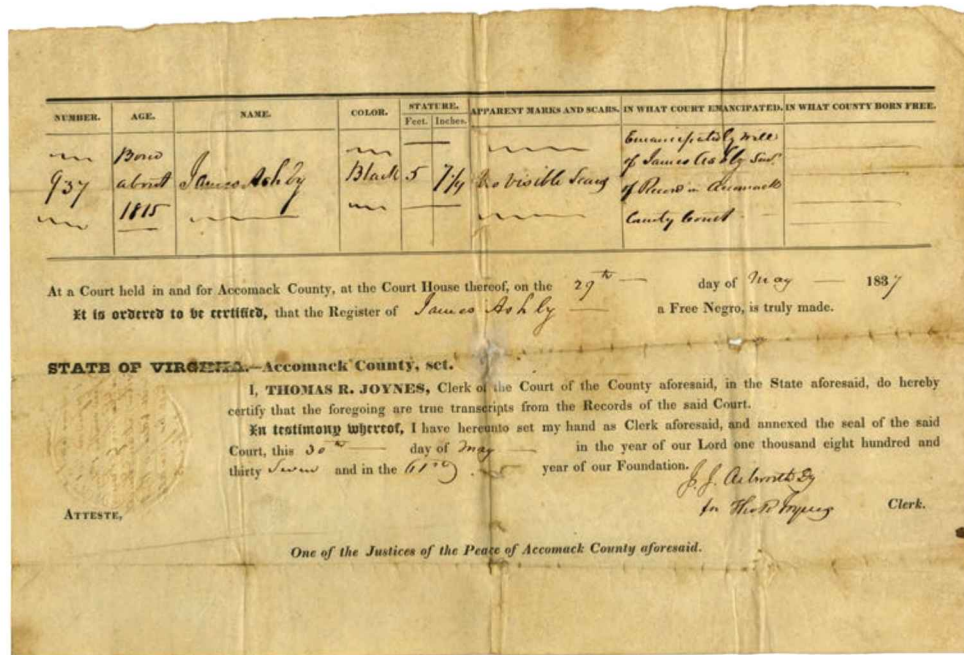 NUMBER. AGE. NAME. COLOR. STATURE. APPARENT MARKS AND SCARS. IN WHAT COURT EMANCIPATED. IN WHAT COUNTY BORN FREE.
Feet. Inches.
Born Emancipated by Will
937 about James Ashby Black 5 7 1/4 No visible Scars of James Ashby
1815 of Record in Accomack
County Court
At a Court held in and for Accomack County, at the Court House thereof, on the 29th day of May 1837
It is ordered to be certified, that the Register of James Ashby a Free Negro, is truly made.
STATE OF VIRGINIA.—Accomack County, sct.
I, THOMAS R. JOYNES, Clerk of the Court of the County aforesaid, in the State aforesaid, do hereby
certify that the foregoing are true transcripts from the Records of the said Court.
In testimony whereof, I have hereunto set my hand as Clerk aforesaid, and annexed the seal of the said
Court, this 30th day of May in the year of our Lord one thousand eight hundred and
thirty Seven and in the 61 year of our Foundation.
J. J.
for Tho R Joynes Clerk.
ATTESTE,
One of the Justices of the Peace of Accomack County aforesaid.